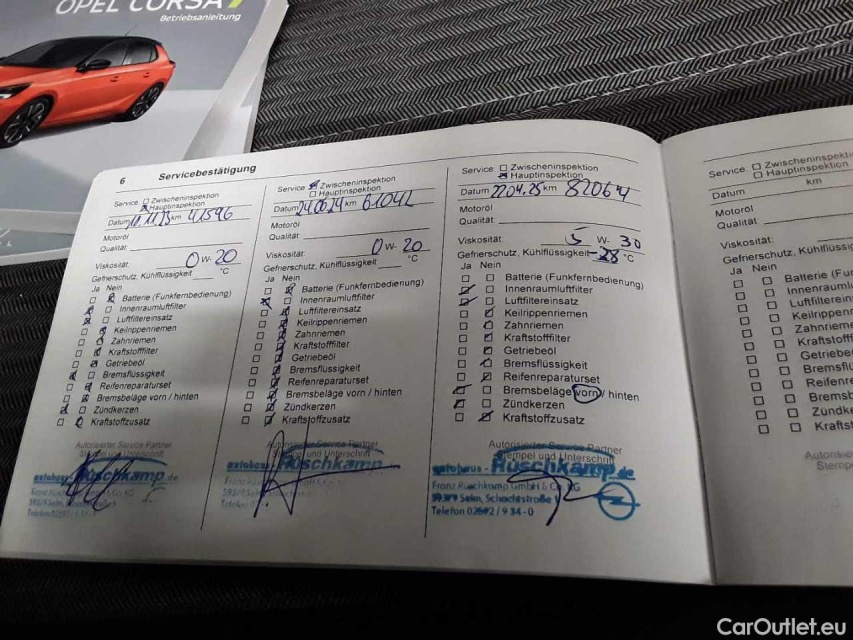 OPEL CORSA
Betriebsanleitung
6 Servicebestätigung
Service Zwischeninspektion
Hauptinspektion
Datum km 41596
Motoröl
Qualität:
Viskosität: 0 W- 20
Gefrierschutz, Kühlflüssigkeit °C
Ja Nein
Batterie (Funkfernbedienung)
Innenraumluftfilter
Luftfiltereinsatz
Keilrippenriemen
Zahnriemen
Kraftstofffilter
Getriebeöl
Bremsflüssigkeit
Reifenreparaturset
Bremsbeläge vorn / hinten
Zündkerzen
Kraftstoffzusatz
Autorisierter Service Partner
Stempel und Unterschrift
autohaus - Rüschkamp.de
Franz Rüschkamp GmbH & Co. KG
59379 Selm,
Telefon 02592 / 9 34 - 0
Service Zwischeninspektion
Hauptinspektion
Datum km
Motoröl
Qualität:
Viskosität: 0 W- 20
Gefrierschutz, Kühlflüssigkeit °C
Ja Nein
Batterie (Funkfernbedienung)
Innenraumluftfilter
Luftfiltereinsatz
Keilrippenriemen
Zahnriemen
Kraftstofffilter
Getriebeöl
Bremsflüssigkeit
Reifenreparaturset
Bremsbeläge vorn / hinten
Zündkerzen
Kraftstoffzusatz
Autorisierter Service Partner
Stempel und Unterschrift
autohaus - Rüschkamp
Service Zwischeninspektion
Hauptinspektion
Datum 22.04.25 km 82064
Motoröl
Qualität:
Viskosität: 5 W- 30
Gefrierschutz, Kühlflüssigkeit -28 °C
Ja Nein
Batterie (Funkfernbedienung)
Innenraumluftfilter
Luftfiltereinsatz
Keilrippenriemen
Zahnriemen
Kraftstofffilter
Getriebeöl
Bremsflüssigkeit
Reifenreparaturset
Bremsbeläge vorn / hinten
Zündkerzen
Kraftstoffzusatz
Autorisierter Service Partner
Stempel und Unterschrift
autohaus - Rüschkamp.de
Franz Rüschkamp GmbH & Co. KG
59379 Selm, Schachtstraße
Telefon 02592 / 9 34 - 0
Service Zwischeninspekti
Hauptinspektion
Datum km
Motoröl
Qualität:
Viskosität:
Gefrierschutz, Kühlflüssig
Ja Nein
Batterie (Fu
Innenrauml
Luftfilterein
Keilrippenr
Zahnrieme
Kraftstoff
Getriebe
Bremsflü
Reifenre
Bremsb
Zündk
Krafts
Autorisi
Stempe
CarOutlet.eu